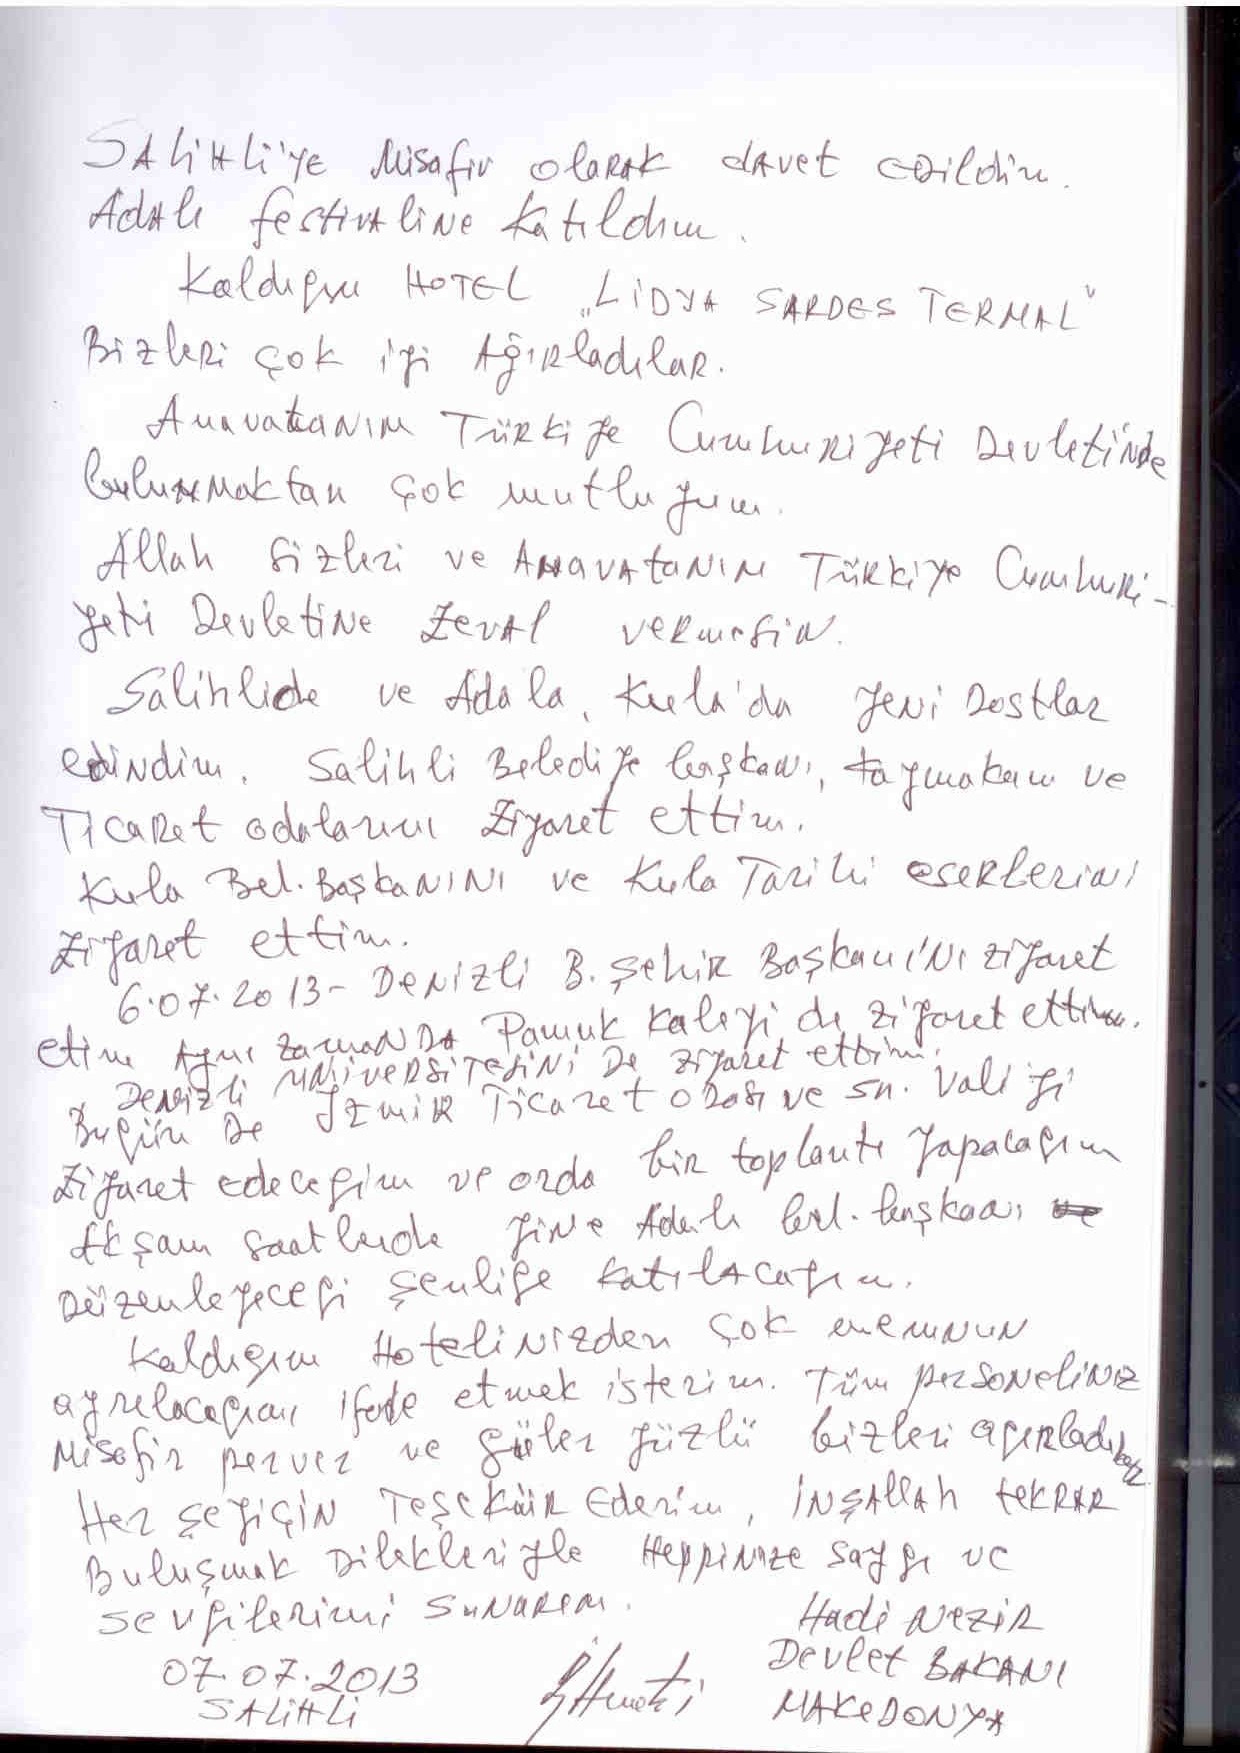 SALİHLİ'ye Misafir olarak davet edildim.
Adala festivaline katıldım.
Kaldığım HOTEL „LİDYA SARDES TERMAL"
Bizleri çok iyi Ağırladılar.
Anavatanım Türkiye Cumhuriyeti Devleti'nde
bulunmaktan çok mutluyum.
Allah sizleri ve Anavatanım Türkiye Cumhuri-
yeti Devletine zeval vermesin.
Salihlide ve Adala, Kula'da yeni Dostlar
edindim. Salihli Belediye başkanı, kaymakam ve
Ticaret odalarını ziyaret ettim.
Kula Bel. Başkanını ve Kula Tarihi eserlerini
ziyaret ettim.
6.07.2013- Denizli B. Şehir Başkanı'nı ziyaret
etim Aynı zamanda Pamuk kaleyi de ziyaret ettim.
Denizli üniversitesini de ziyaret ettim.
Bugün de İzmir Ticaret odası ve sn. Valiyi
ziyaret edeceğim ve orda bir toplantı yapacağım
Akşam saatlerde yine Adala bel. başkanı
Düzenleyeceği şenliğe katılacağım.
Kaldığım Hotelinizden çok memnun
ayrılacağımı ifade etmek isterim. Tüm personeliniz
Misafir perver ve güler yüzlü bizleri agırladılar.
Her şeyiçin Teşekür Ederim, İnşallah tekrar
Buluşmak Dilekleriyle Heppinize saygı ve
sevgilerimi sunarım.
Hadi Nezir
07.07.2013 Devlet BAKANI
SALİHLİ MAKEDONYA